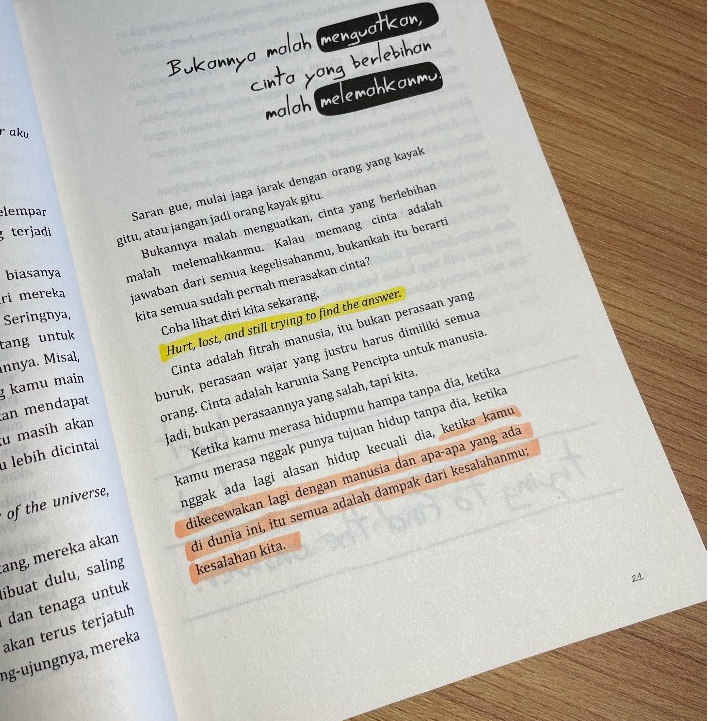 r aku
elempar
g terjadi
biasanya
ri mereka
Seringnya,
tang untuk
annya. Misal,
g kamu main
kan mendapat
tu masih akan
u lebih dicintai
of the universe,
tang, mereka akan
dibuat dulu, saling
dan tenaga untuk
akan terus terjatuh
ng-ujungnya, mereka
Bukannya malah menguatkan,
cinta yang berlebihan
malah melemahkanmu.
Saran gue, mulai jaga jarak dengan orang yang kayak
gitu, atau jangan jadi orang kayak gitu.
Bukannya malah menguatkan, cinta yang berlebihan
malah melemahkanmu. Kalau memang cinta adalah
jawaban dari semua kegelisahanmu, bukankah itu berarti
kita semua sudah pernah merasakan cinta?
Coba lihat diri kita sekarang.
Hurt, lost, and still trying to find the answer.
Cinta adalah fitrah manusia, itu bukan perasaan yang
buruk, perasaan wajar yang justru harus dimiliki semua
orang. Cinta adalah karunia Sang Pencipta untuk manusia.
Jadi, bukan perasaannya yang salah, tapi kita.
Ketika kamu merasa hidupmu hampa tanpa dia, ketika
kamu merasa nggak punya tujuan hidup tanpa dia, ketika
nggak ada lagi alasan hidup kecuali dia, ketika kamu
dikecewakan lagi dengan manusia dan apa-apa yang ada
di dunia ini, itu semua adalah dampak dari kesalahanmu;
kesalahan kita.
21